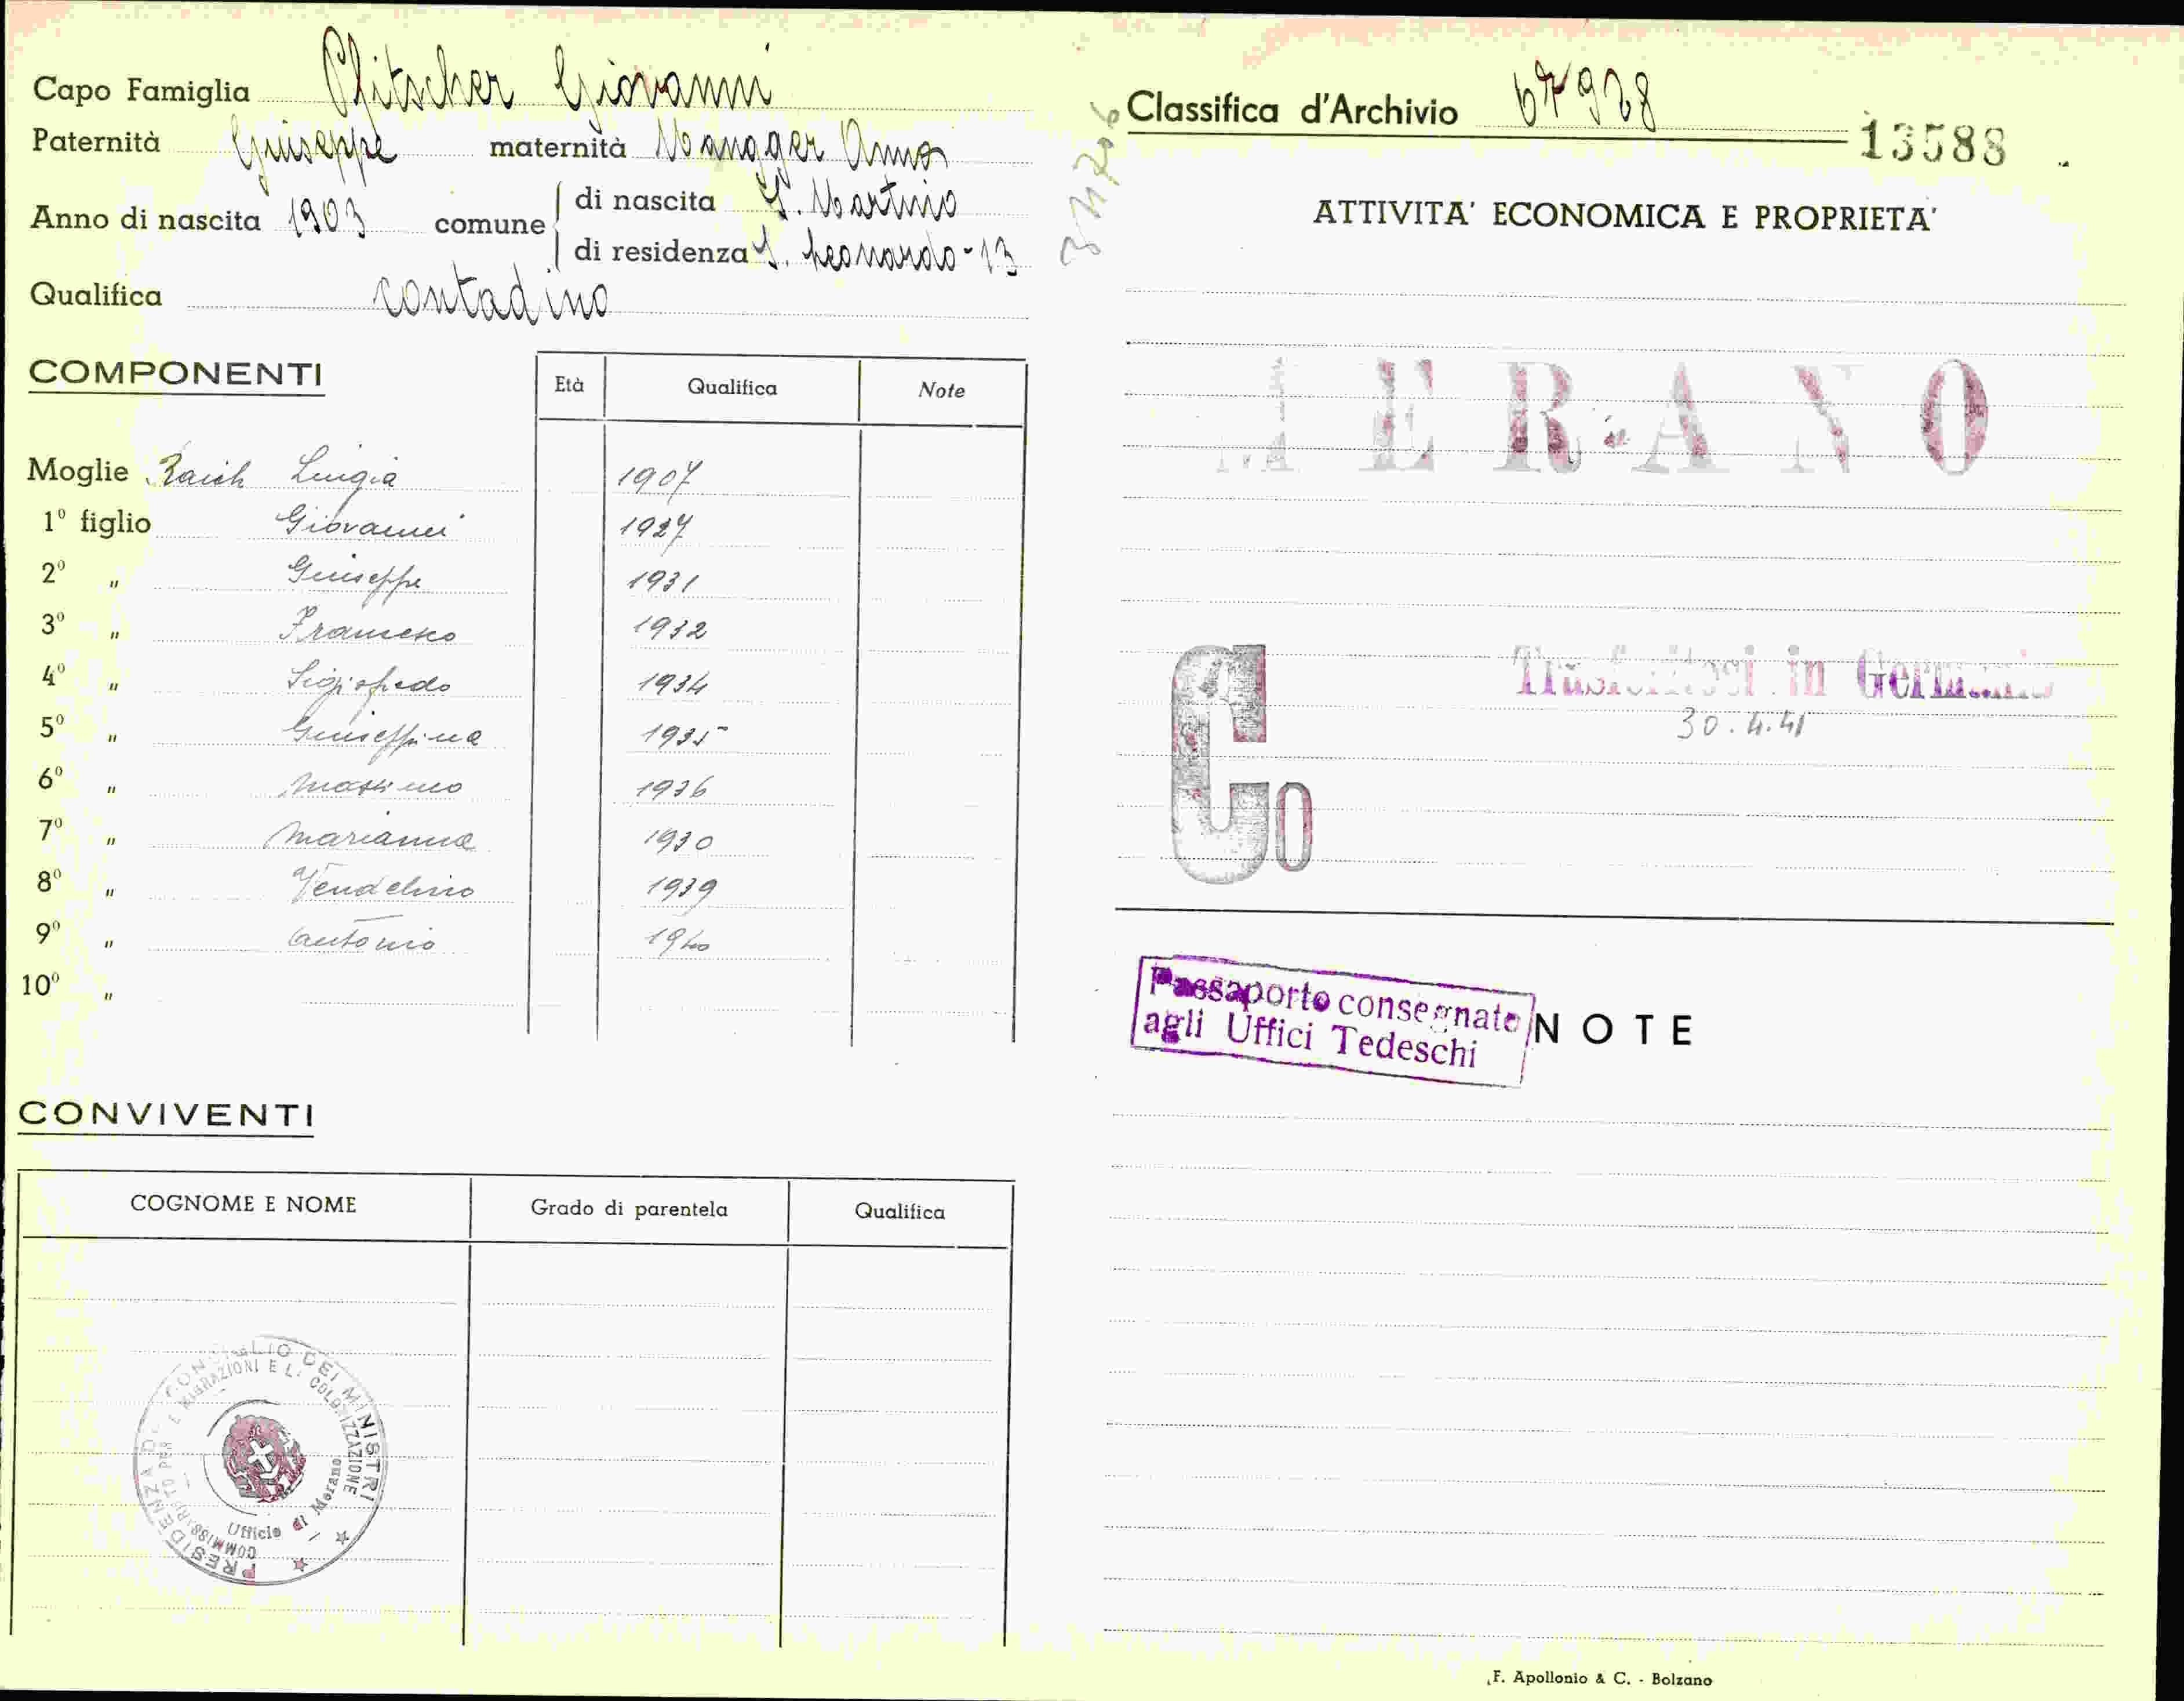 Capo Famiglia Pfitscher Giovanni
Paternità Giuseppe maternità Mangger Anna
Anno di nascita 1903 comune di nascita S. Martino
di residenza S. Leonardo-13
Qualifica contadino
COMPONENTI
Età Qualifica Note
Moglie Raich Luigia 1907
1° figlio Giovanni 1927
2° " Giuseppe 1931
3° " Francesco 1932
4° " Sigisfredo 1934
5° " Giuseppina 1935
6° " Massimo 1936
7° " Marianna 1930
8° " Vendelino 1939
9° " Antonio 1940
10° "
CONVIVENTI
COGNOME E NOME Grado di parentela Qualifica
PRESIDENZA DEL CONSIGLIO DEI MINISTRI
COMMISSARIATO PER LE MIGRAZIONI E LA COLONIZZAZIONE
Ufficio di Merano
Classifica d'Archivio 67928
13588
ATTIVITA' ECONOMICA E PROPRIETA'
MERANO
Trasferitosi in Germania
30.4.41
Co
Passaporto consegnato
agli Uffici Tedeschi
NOTE
F. Apollonio & C. - Bolzano